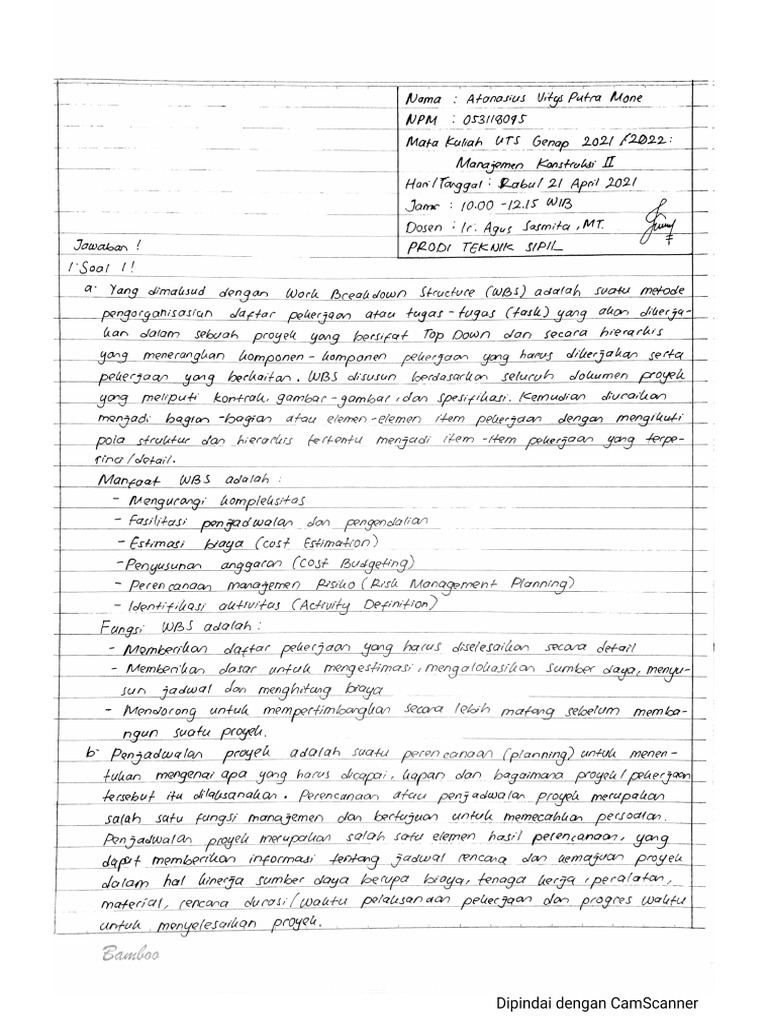 Nama : Atanasius Vitys Putra Mone
NPM : 053118095
Mata Kuliah UTS Genap 2021/2022:
Manajemen Konstruksi II
Hari/Tanggal : Rabu/ 21 April 2021
Jam : 10.00 - 12.15 WIB
Dosen : Ir. Agus Sasmita, MT.
PRODI TEKNIK SIPIL
Jawaban !
1. Soal 1!
a. Yang dimaksud dengan Work Breakdown Structure (WBS) adalah suatu metode
pengorganisasian daftar pekerjaan atau tugas-tugas (task) yang akan dikerja-
kan dalam sebuah proyek yang bersifat Top Down dan secara hierarkis
yang menerangkan komponen-komponen pekerjaan yang harus dikerjakan serta
pekerjaan yang berkaitan. WBS disusun berdasarkan seluruh dokumen proyek
yang meliputi kontrak, gambar-gambar, dan spesifikasi. Kemudian diuraikan
menjadi bagian-bagian atau elemen-elemen item pekerjaan dengan mengikuti
pola struktur dan hierarkis tertentu menjadi item-item pekerjaan yang terpe-
rinci/detail.
Manfaat WBS adalah :
- Mengurangi kompleksitas
- Fasilitasi penjadwalan dan pengendalian
- Estimasi biaya (Cost Estimation)
- Penyusunan anggaran (Cost Budgeting)
- Perencanaan manajemen Risiko (Risk Management Planning)
- Identifikasi aktivitas (Activity Definition)
Fungsi WBS adalah :
- Memberikan daftar pekerjaan yang harus diselesaikan secara detail
- Memberikan dasar untuk mengestimasi, mengalokasikan sumber daya, menyu-
sun jadwal dan menghitung biaya
- Mendorong untuk mempertimbangkan secara lebih matang sebelum memba-
ngun suatu proyek.
b. Penjadwalan proyek adalah suatu perencanaan (planning) untuk menen-
tukan mengenai apa yang harus dicapai, kapan dan bagaimana proyek/pekerjaan
tersebut itu dilaksanakan. Perencanaan atau penjadwalan proyek merupakan
salah satu fungsi manajemen dan bertujuan untuk memecahkan persoalan.
Penjadwalan proyek merupakan salah satu elemen hasil perencanaan, yang
dapat memberikan informasi tentang jadwal rencana dan kemajuan proyek
dalam hal kinerja sumber daya berupa biaya, tenaga kerja, peralatan,
material, rencana durasi/waktu pelaksanaan pekerjaan dan progres waktu
untuk menyelesaikan proyek.
Bamboo
Dipindai dengan CamScanner